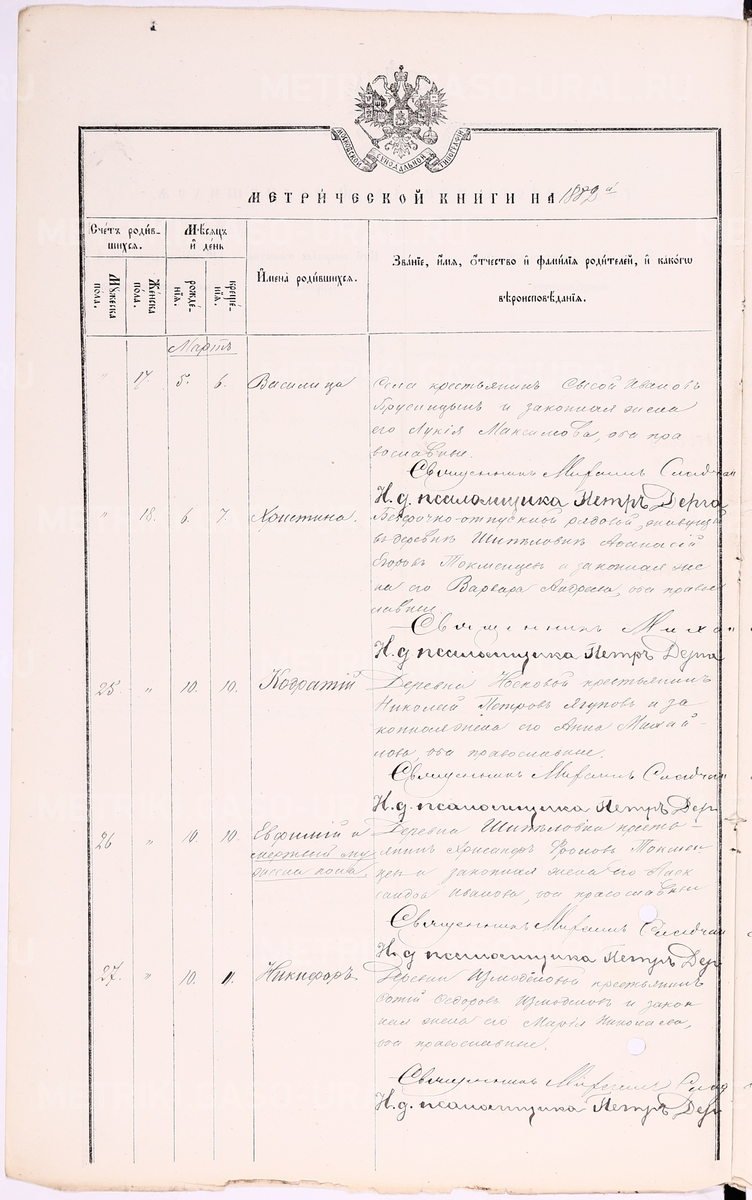 МОСКОВСКОЙ СѴНОДАЛЬНОЙ ТИПОГРАФІИ
МЕТРИЧЕСКОЙ КНИГИ НА 1882 й
Счетъ родив-
шихся.
Мѣсяцъ
и день
Мужеска
пола.
Женска
пола.
рожде-
нія.
креще-
нія.
Имена родившихся.
Званіе, имя, отчество и фамилія родителей, и какого
вѣроисповѣданія.
Мартъ
" 17 5. 6. Василиса
Села крестьянинъ Сысой Ивановъ
Брусницынъ и законная жена
его Лукія Максимова, оба пра
вославные.
Священникъ Михаилъ
И. д. псаломщика Петръ Дерга
" 18. 6. 7. Христина.
Безсрочно-отпускной рядовой, живущій
въ деревнѣ Аѳанасій
и законная же
на его Варвара Андреева, оба право
славные
Священникъ Миха
И. д. псаломщика Петръ Дерга
25. " 10. 10. Кодратій
Деревни крестьянинъ
Николай Петровъ Ягуповъ и за
конная жена его Анна Михай-
лова, оба православные.
Священникъ Михаилъ
И. д. псаломщика Петръ Дер
26 " 10. 10. Евфимій и
мертвый му
жеска пола
Деревни кресть-
янинъ Хрисанфъ Фроловъ
и законная жена его Алек
сандра Иванова, оба православные
Священникъ Михаилъ
И. д. псаломщика Петръ Дер
27. " 10. 11. Никифоръ.
Деревни Измоденовой крестьянинъ
Фотій Ѳедоровъ Измоденовъ и закон
ная жена его Марія Николаева,
оба православные.
Священникъ Михаилъ
И. д. псаломщика Петръ Дерг